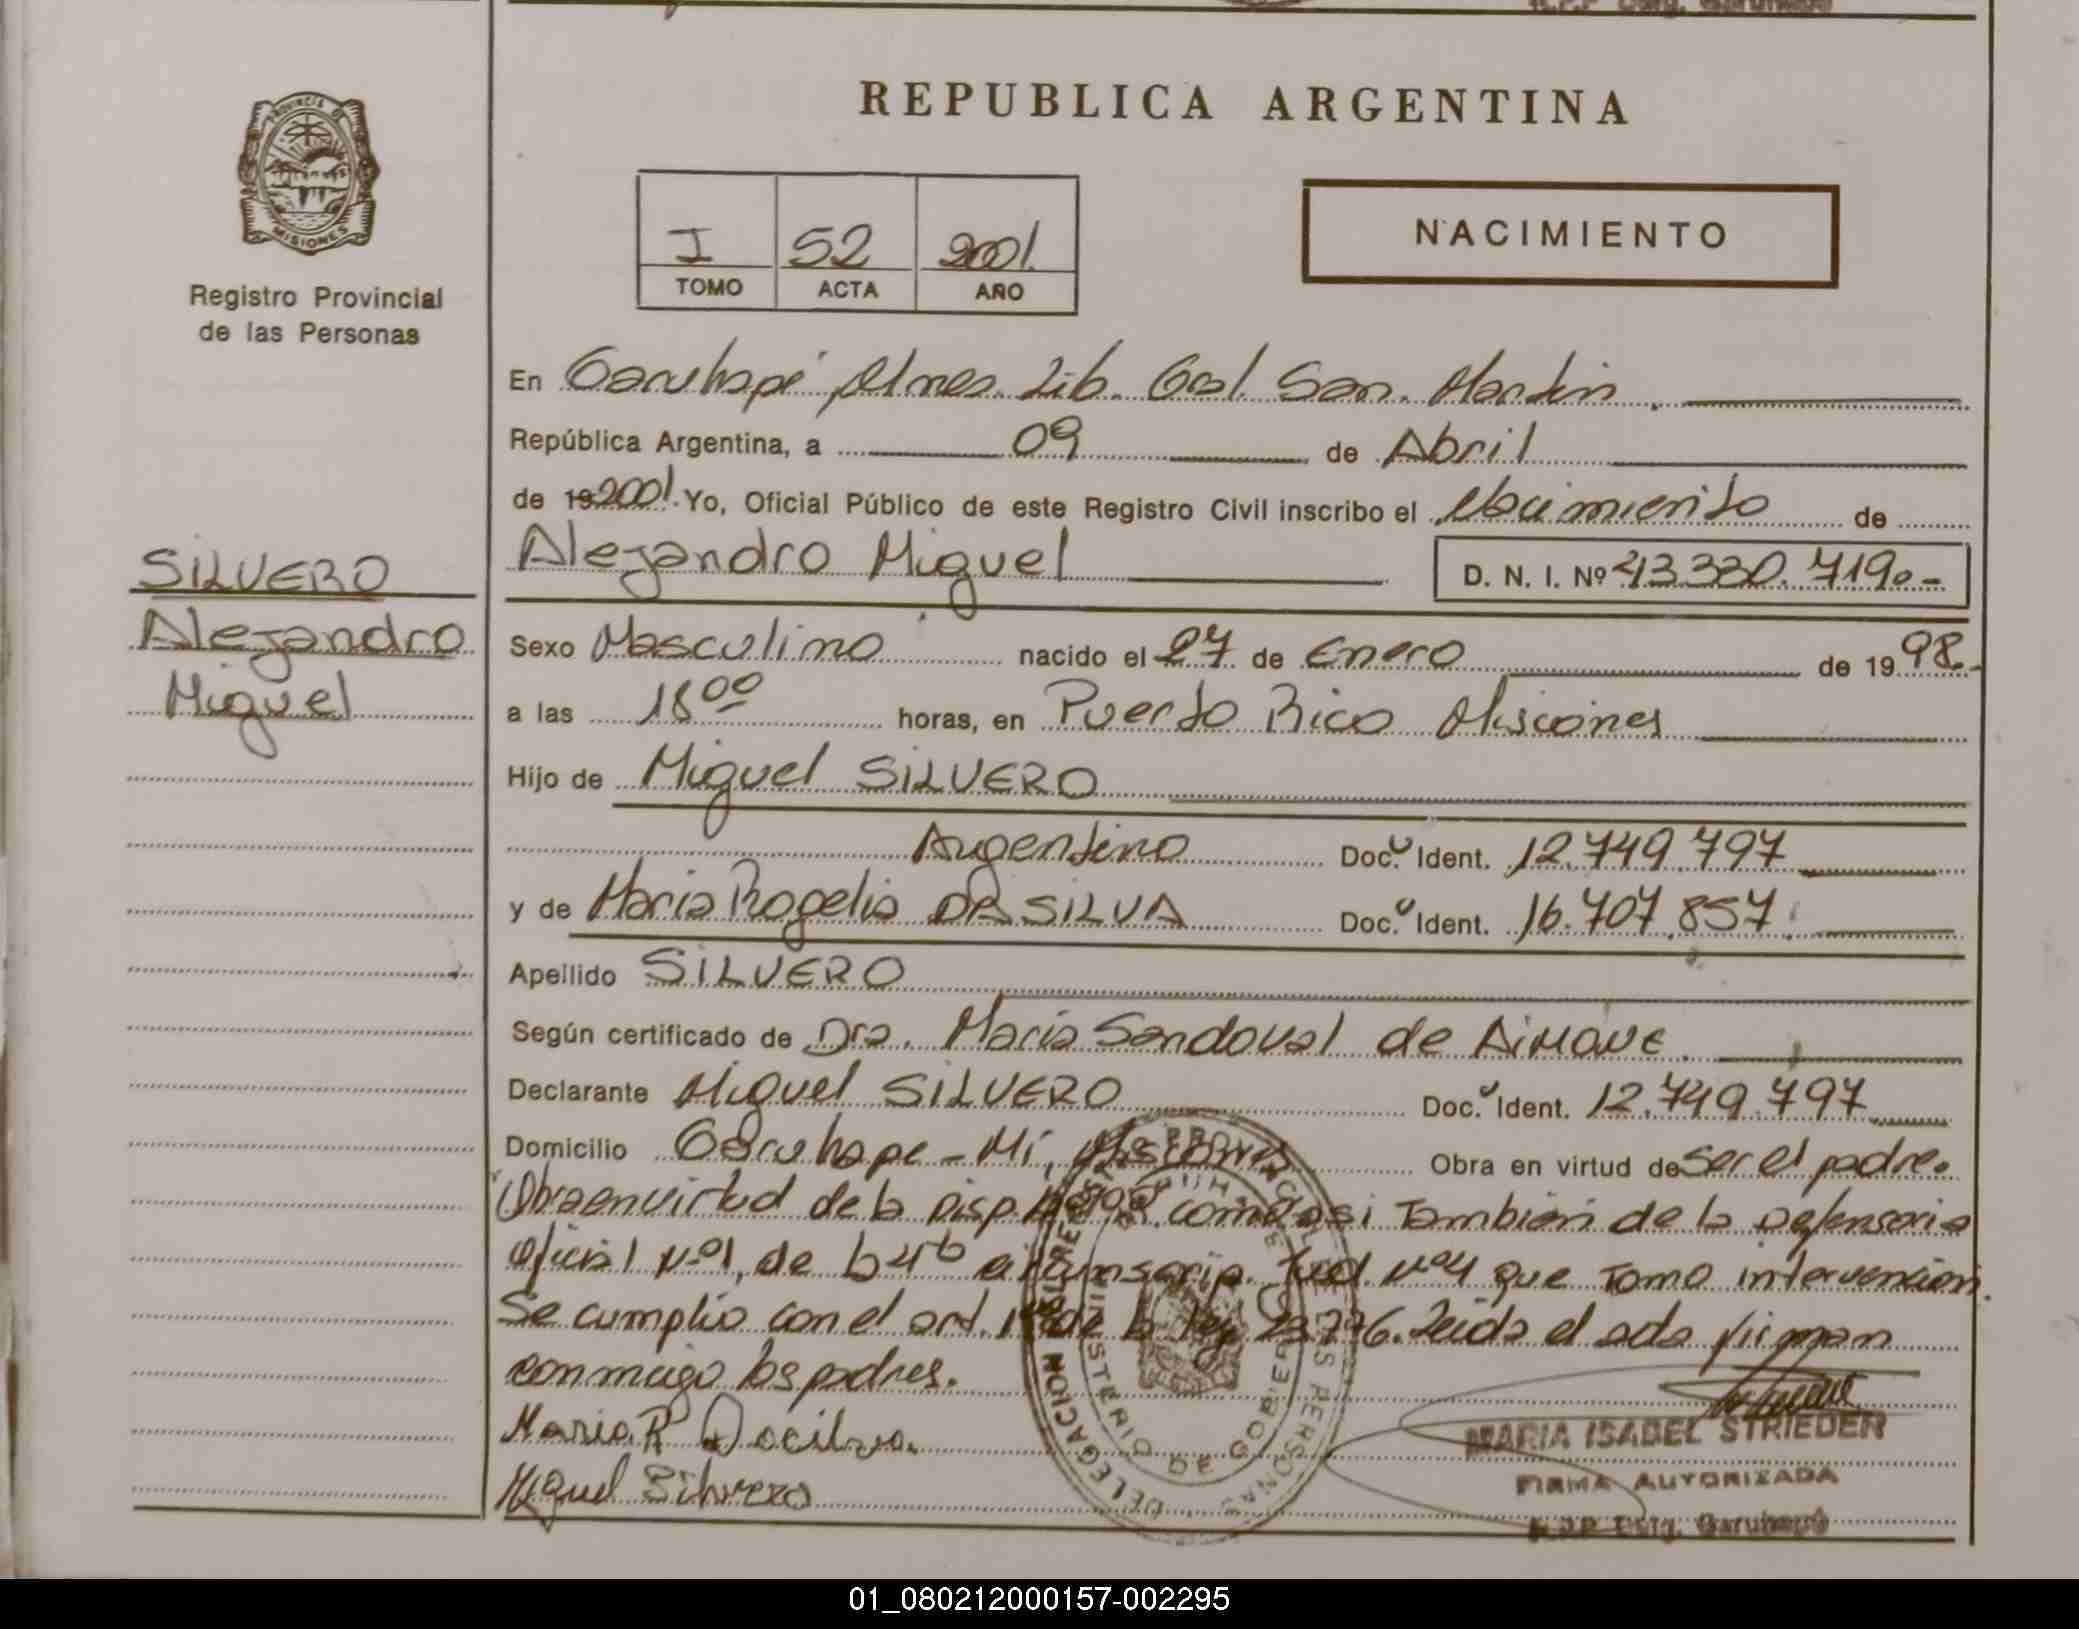 REPUBLICA ARGENTINA
PROVINCIA DE
MISIONES
Registro Provincial
de las Personas
I 52 2001.
TOMO ACTA AÑO
NACIMIENTO
En Garuhapé Mnes. Lib. Gral. San. Martin.
República Argentina, a 09 de Abril
de 19 2001. Yo, Oficial Público de este Registro Civil inscribo el Nacimiento de
Alejandro Miguel D. N. I. Nº 43.330.719.-
SILVERO
Alejandro
Miguel
Sexo Masculino nacido el 27 de Enero de 1998.-
a las 18 00 horas, en Puerto Rico Misiones
Hijo de Miguel SILVERO
Argentino Doc. Ident. 12.749.797
y de Maria Rogelia DA SILVA Doc. Ident. 16.707.857.
Apellido SILVERO
Según certificado de Dra. Maria Sandoval de AIMONE.
Declarante Miguel SILVERO Doc. Ident. 12.749.797
Domicilio Garuhape - Mi, Misiones Obra en virtud de Ser el padre.
Obra en virtud de la Disp. como asi Tambien de la Defensoria
oficial Nº1, de la 4ta circunscrip. Jud. Nº4 que Tomo intervencion.
Se cumplio con el art. 1º de la Ley 23.776. Leida el acta firman
conmigo los padres.
Maria R Dacilva.
Miguel Silvero
MARIA ISABEL STRIEDER
FIRMA AUTORIZADA
R.P.P Delg. Garuhapé
DELEGACION
REGISTRO PROVINCIAL DE LAS PERSONAS
MINISTERIO DE GOBIERNO
01_080212000157-002295